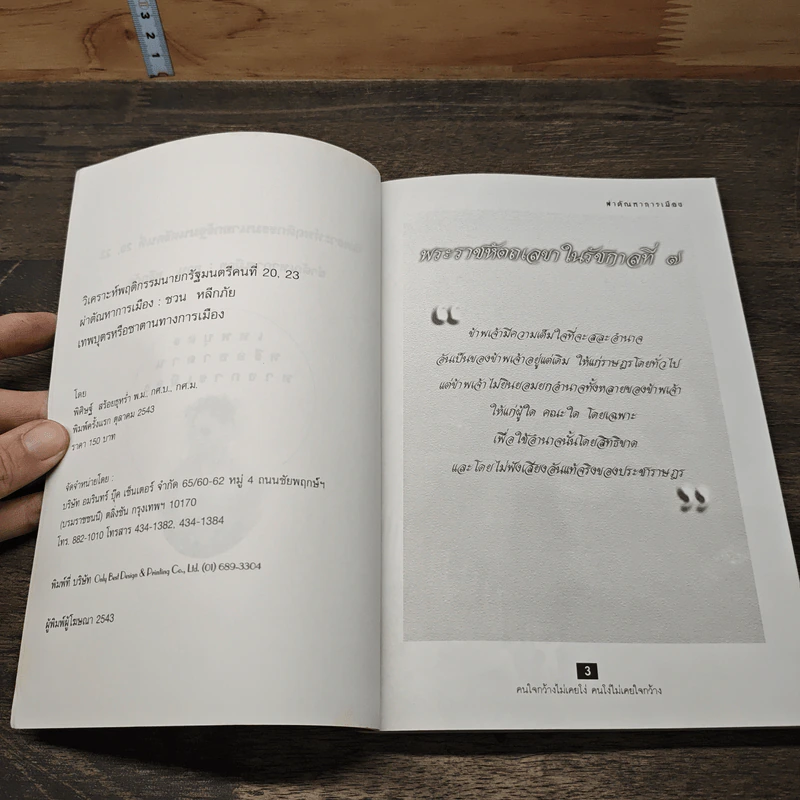 3
2
1
วิเคราะห์พฤติกรรมนายกรัฐมนตรีคนที่ 20, 23
ผ่าตัณหาการเมือง : ชวน หลีกภัย
เทพบุตรหรือซาตานทางการเมือง
โดย
พิศิษฐ์ สร้อยธุหร่ำ พ.ม., กศ.บ., กศ.ม.
พิมพ์ครั้งแรก ตุลาคม 2543
ราคา 150 บาท
จัดจำหน่ายโดย :
บริษัท อมรินทร์ บุ๊ค เซ็นเตอร์ จำกัด 65/60-62 หมู่ 4 ถนนชัยพฤกษ์ฯ
(บรมราชชนนี) ตลิ่งชัน กรุงเทพฯ 10170
โทร. 882-1010 โทรสาร 434-1382, 434-1384
พิมพ์ที่ บริษัท Only Best Design & Printing Co., Ltd. (01) 689-3304
ผู้พิมพ์ผู้โฆษณา 2543
ผ่าตัณหาการเมือง
พระราชหัตถเลขาในรัชกาลที่ ๗
“ ข้าพเจ้ามีความเต็มใจที่จะสละอำนาจ
อันเป็นของข้าพเจ้าอยู่แต่เดิม ให้แก่ราษฎรโดยทั่วไป
แต่ข้าพเจ้าไม่ยินยอมยกอำนาจทั้งหลายของข้าพเจ้า
ให้แก่ผู้ใด คณะใด โดยเฉพาะ
เพื่อใช้อำนาจนั้นโดยสิทธิขาด
และโดยไม่ฟังเสียงอันแท้จริงของประชาราษฎร ”
3
คนใจกว้างไม่เคยโง่ คนโง่ไม่เคยใจกว้าง